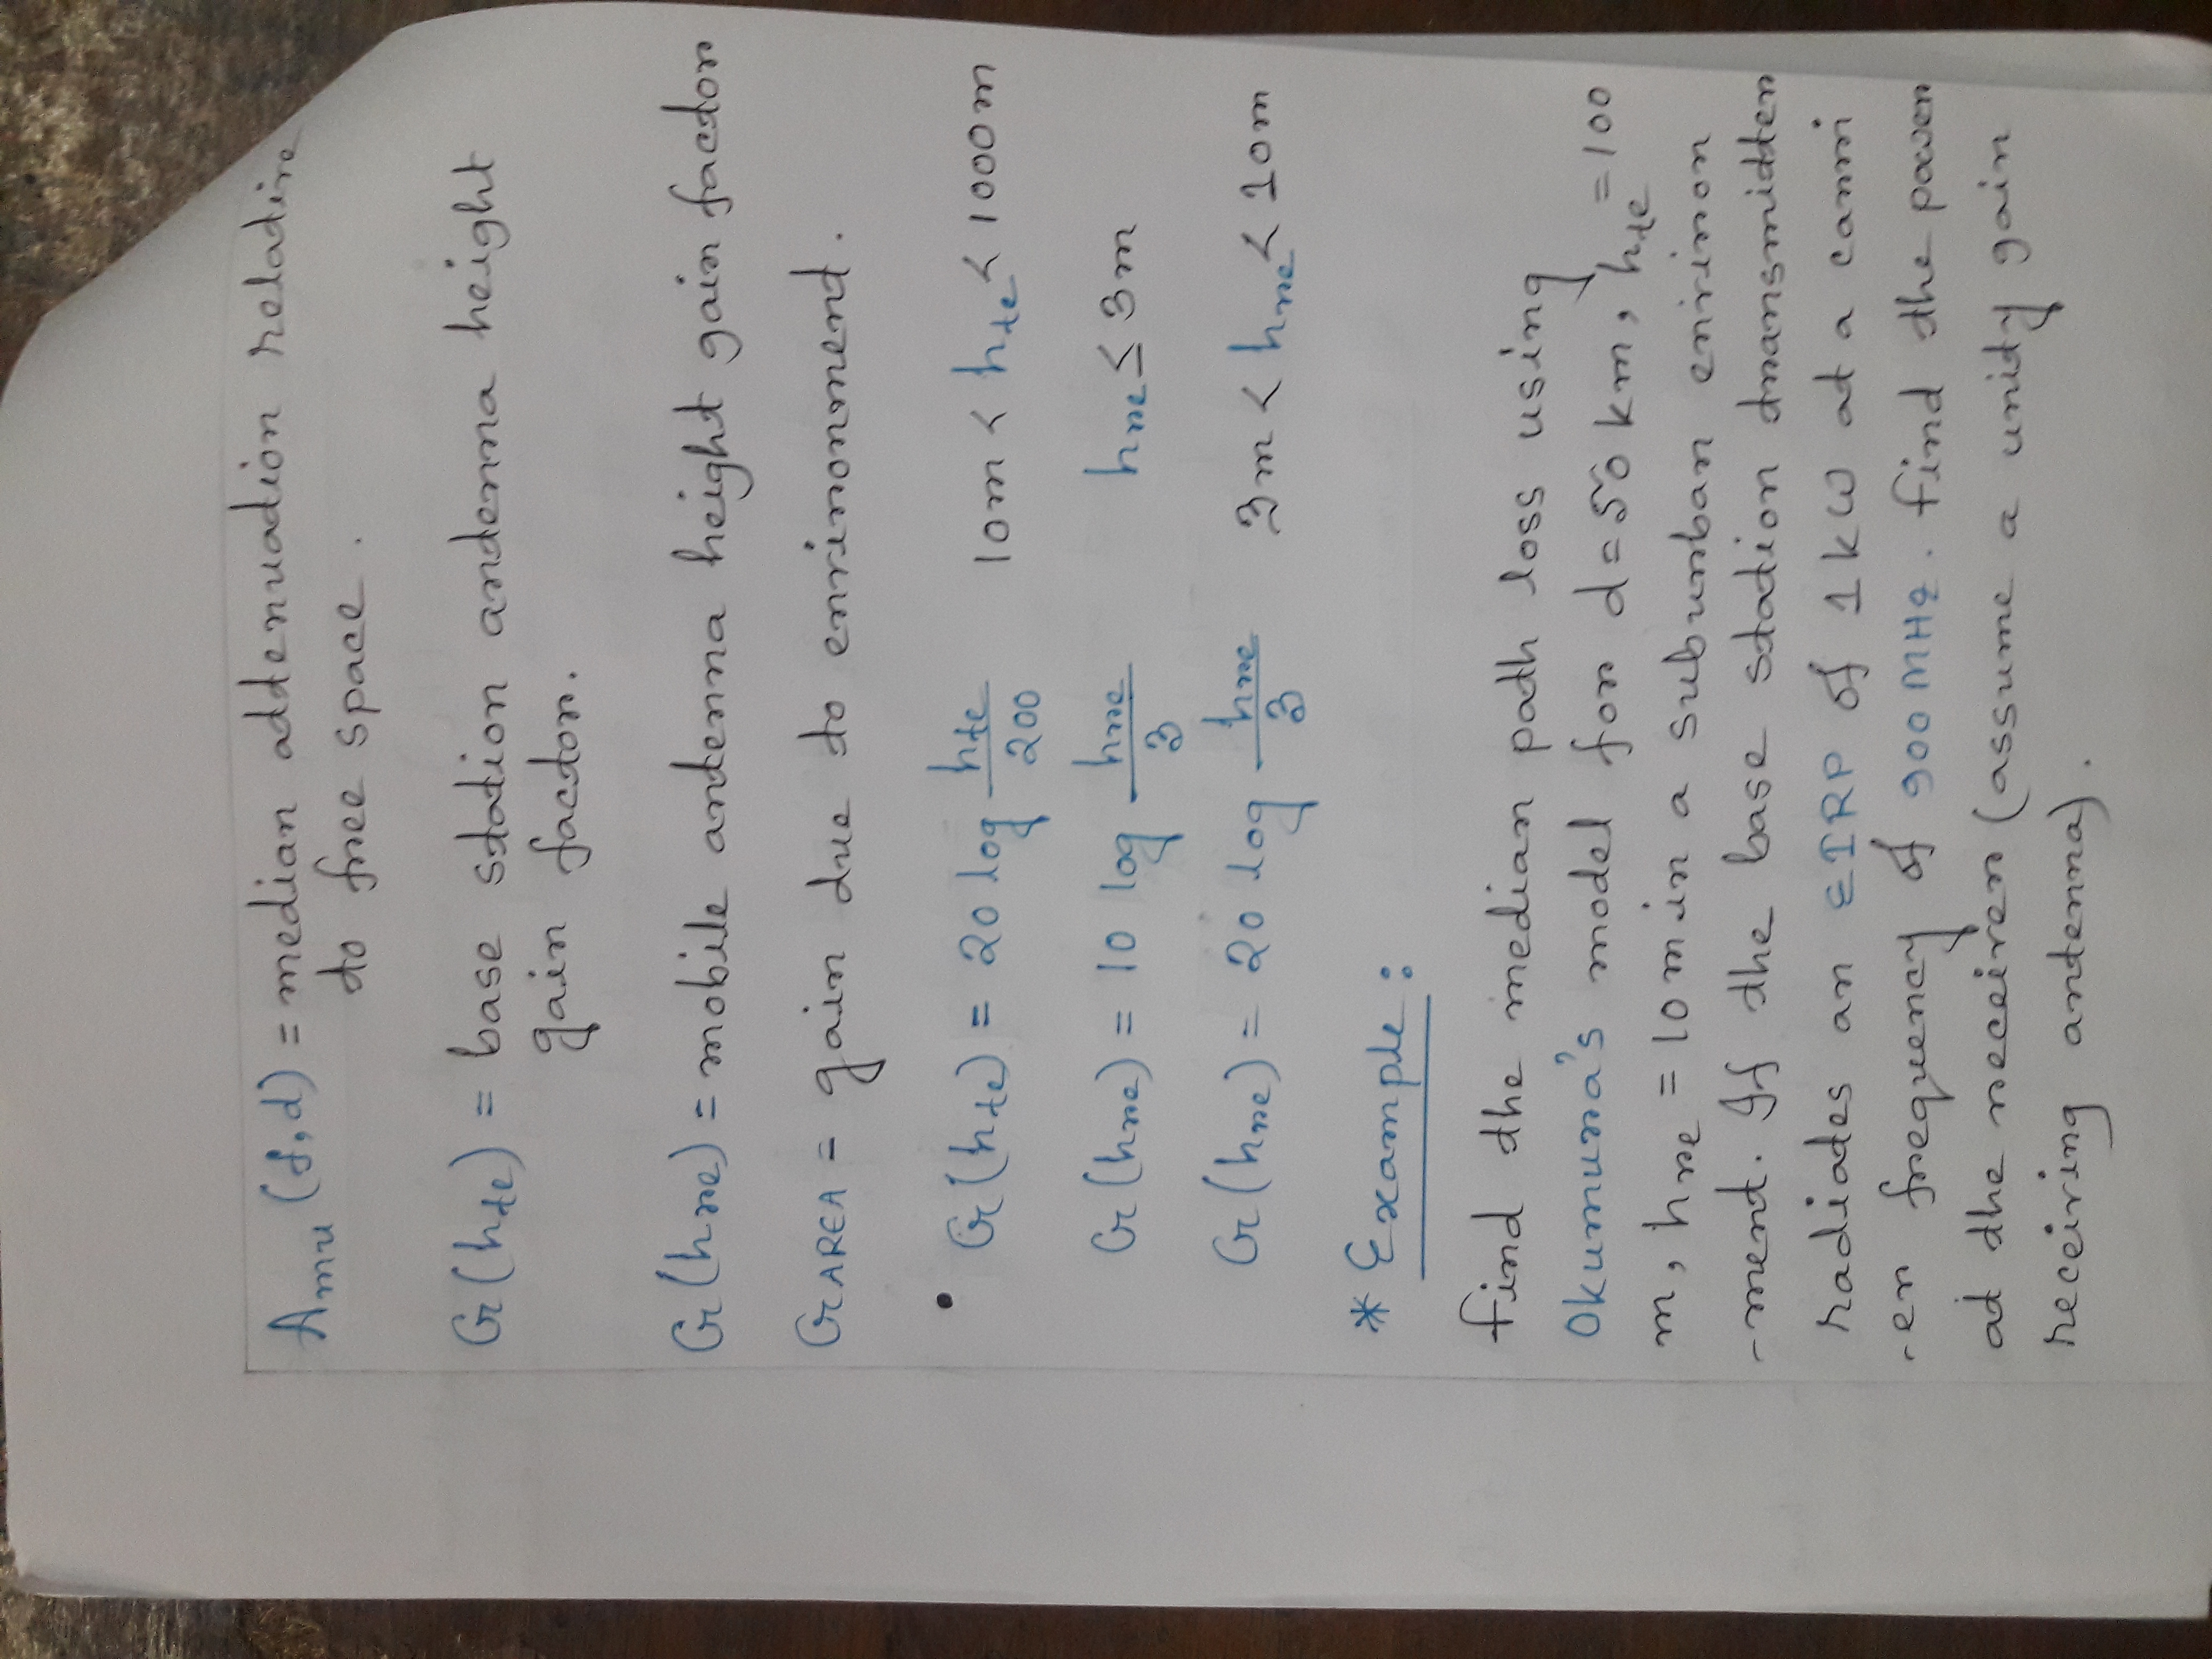 Amu (f,d) = median attenuation relative
to free space.
G(hte) = base station antenna height
gain factor.
G(hre) = mobile antenna height gain factor
GAREA = gain due to environment.
• G(hte) = 20 log hte/200 10m < hte < 1000m
G(hre) = 10 log hre/3 hre ≤ 3m
G(hre) = 20 log hre/3 3m < hre < 10m
* Example:
find the median path loss using
Okumura's model for d=50 km, hte = 100
m, hre = 10 m in a suburban environ
-ment. If the base station transmitter
radiates an EIRP of 1kW at a carri
-er frequency of 900 MHz. find the power
at the receiver (assume a unity gain
receiving antenna).